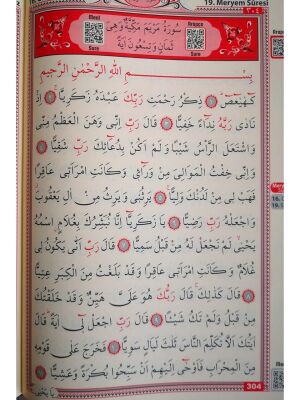 19. Meryem Sûresi
٣٠٤
Meal
Arapça
سُورَةُ مَرْيَمَ مَكِّيَّةٌ وَهِيَ
ثَمَانٍ وَتِسْعُونَ اٰيَةً
Sure
Sure
بِسْمِ اللّٰهِ الرَّحْمٰنِ الرَّحِيمِ
كٓهٰيٰعٓصٓ ﴿١﴾ ذِكْرُ رَحْمَتِ رَبِّكَ عَبْدَهُ زَكَرِيَّا ﴿٢﴾ اِذْ
نَادٰى رَبَّهُ نِدَٓاءً خَفِيًّا ﴿٣﴾ قَالَ رَبِّ اِنِّي وَهَنَ الْعَظْمُ مِنِّي
وَاشْتَعَلَ الرَّأْسُ شَيْبًا وَلَمْ اَكُنْ بِدُعَٓائِكَ رَبِّ شَقِيًّا ﴿٤﴾
وَاِنِّي خِفْتُ الْمَوَالِيَ مِنْ وَرَٓاءِي وَكَانَتِ امْرَاَتِي عَاقِرًا
فَهَبْ لِي مِنْ لَدُنْكَ وَلِيًّا ﴿٥﴾ يَرِثُنِي وَيَرِثُ مِنْ اٰلِ يَعْقُوبَ
وَاجْعَلْهُ رَبِّ رَضِيًّا ﴿٦﴾ يَا زَكَرِيَّٓا اِنَّا نُبَشِّرُكَ بِغُلَامٍ اسْمُهُ
يَحْيٰى لَمْ نَجْعَلْ لَهُ مِنْ قَبْلُ سَمِيًّا ﴿٧﴾ قَالَ رَبِّ اَنّٰى يَكُونُ لِي
غُلَامٌ وَكَانَتِ امْرَاَتِي عَاقِرًا وَقَدْ بَلَغْتُ مِنَ الْكِبَرِ عِتِيًّا
﴿٨﴾ قَالَ كَذٰلِكَ قَالَ رَبُّكَ هُوَ عَلَيَّ هَيِّنٌ وَقَدْ خَلَقْتُكَ
مِنْ قَبْلُ وَلَمْ تَكُ شَيْئًا ﴿٩﴾ قَالَ رَبِّ اجْعَلْ لِٓي اٰيَةً قَالَ
اٰيَتُكَ اَلَّا تُكَلِّمَ النَّاسَ ثَلٰثَ لَيَالٍ سَوِيًّا ﴿١٠﴾ فَخَرَجَ عَلٰى قَوْمِهِ
مِنَ الْمِحْرَابِ فَاَوْحٰٓى اِلَيْهِمْ اَنْ سَبِّحُوا بُكْرَةً وَعَشِيًّا ﴿١١﴾
304